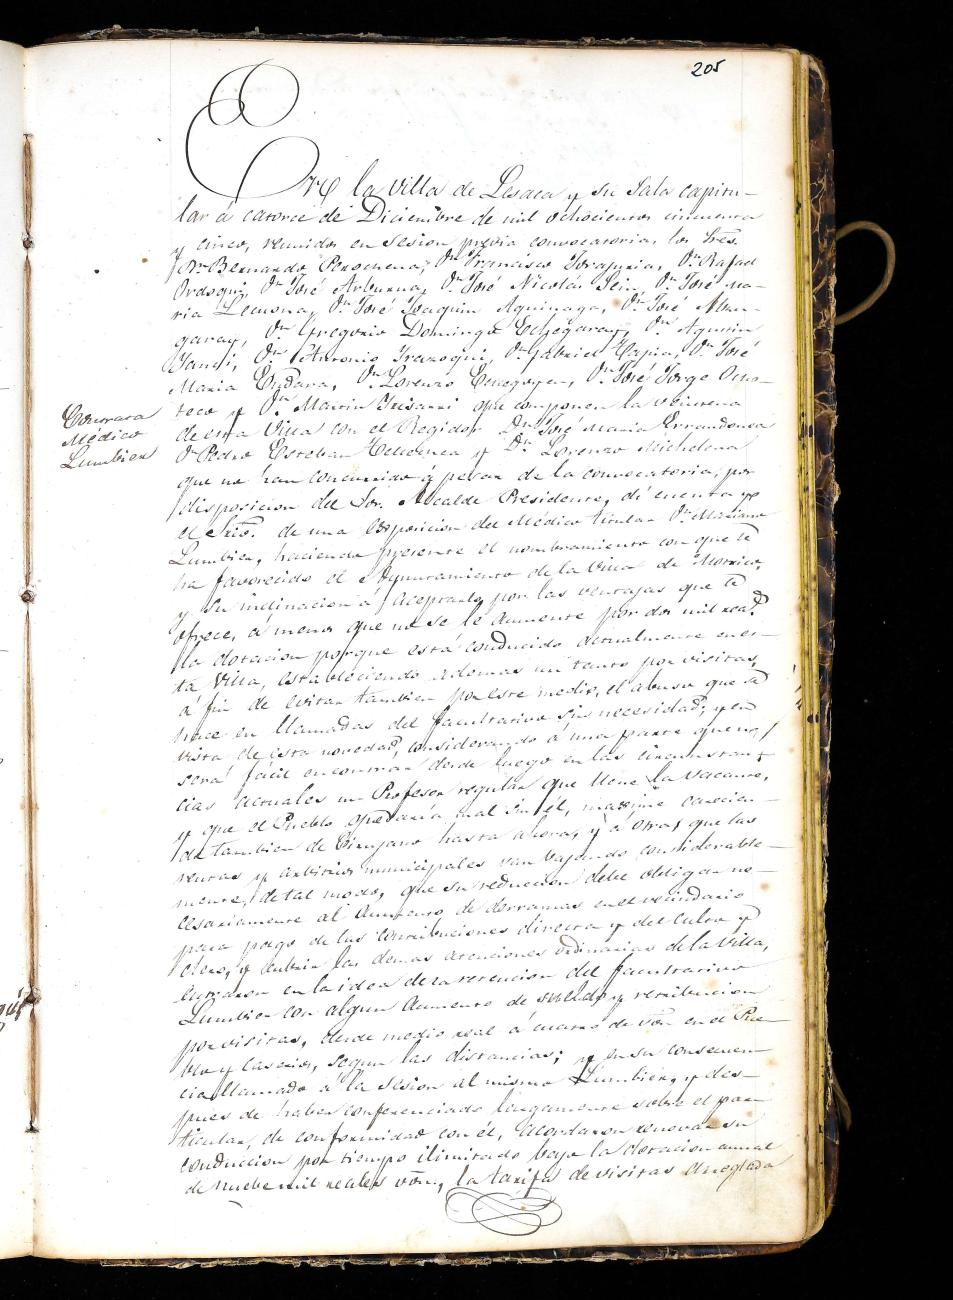 205
En la Villa de Lesaca y su Sala capitu-
lar á catorce de Diciembre de mil ochocientos cincuenta
y cinco, reunidos en sesion previa convocatoria, los Sres.
Dn Bernardo Perochena, Dn Francisco Iorajuria, Dn Rafael
Ordoqui, Dn José Arburua, Dn José Nicolás Lein, Dn José Ma-
ria Lecuona, Dn José Joaquin Aguinaga, Dn José Mar-
garay, Dn Gregorio Domingo Echegaray, Dn Agustin
Yanci, Dn Antonio Irazoqui, Dn Gabriel Tapia, Dn José
Maria Endara, Dn Lorenzo Etulegoyen, Dn José Jorge Ocho-
teco y Dn Martin Irisarri que componen la veintena
Contrata
Médico
Lumbier
de esta Villa con el Regidor Dn José Maria Errandonea
Dn Pedro Esteban Echevnea y Dn Lorenzo Michelena
que no han concurrido á pesar de la convocatoria, por
disposicion del Sor. Alcalde Presidente, dí cuenta yo
el Srio. de una Esposicion del Médico titular Dn Mariano
Lumbier, haciendo presente el nombramiento con que le
ha favorecido el Ayuntamiento de la Villa de Motrico,
y su inclinacion á aceptarlo por las ventajas que le
ofrece, á menos que no se le aumente por dos mil reas.
la dotacion porque está conducido actualmente en es-
ta Villa, estableciendo ademas un tanto por visitas,
á fin de evitar tambien por este medio, el abuso que se
hace en llamadas del facultativo sin necesidad; y en
vista de esta novedad, considerando á una parte que no
será facil encontrar desde luego en las circunstan-
cias actuales un Profesor regular que llene la vacante,
y que el Pueblo quedaría mal sin él, maxime carecien-
do tambien de Cirujano hasta ahora, y á otra, que las
rentas y arbitrios municipales van bajando considerable-
mente, de tal modo, que su reduccion debe obligar ne-
cesariamente al aumento de derramas en el vecindario
para pago de las contribuciones directa y del Culto y
Clero, y cubrir las demas atenciones ordinarias de la Villa,
entraron en la idea de la retencion del facultativo
Lumbier con algun aumento de sueldo y retribucion
por visitas, desde medio real á cuatro de von. en el Pue-
blo y caserios, segun las distancias; y en su consecuen-
cia llamado á la sesion al mismo Lumbier, y des-
pues de haber conferenciado largamente sobre el par-
ticular, de conformidad con él, acordaron renovar su
conduccion por tiempo ilimitado bajo la dotacion annual
de nuebe mil reales von., la tarifa de visitas arreglada